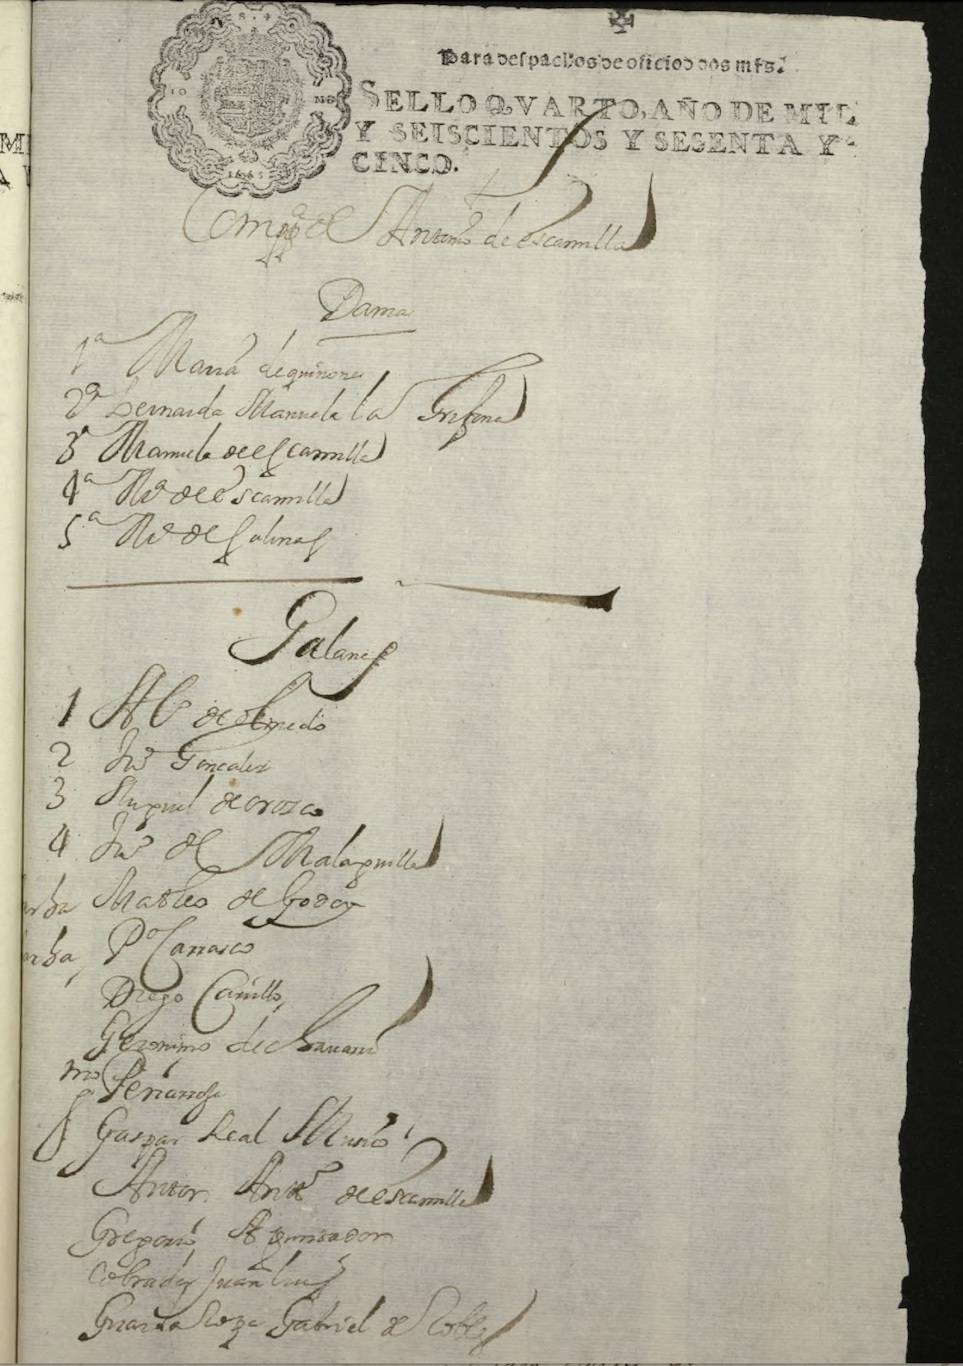 Para despachos de oficio dos mrs.
SELLO QVARTO, AÑO DE MIL
Y SEISCIENTOS Y SESENTA Y
CINCO.
1665
Compª de Antonio de escamilla
Damas
1ª Maria de quiñones
2ª Bernarda Manuela la Grifona
3ª Manuela de escamilla
4ª Mª de escamilla
5ª Mª de salinas
Galanes
1 Alº de olmedo
2 Juº Gonçalez
3 Miguel de orozco
4 Juº de Malaguilla
Matheo de Godoy
Pº Carrasco
Diego Carrillo
Geronimo de
Peñarroja
Gaspar Real Musico
Autor Antº de escamilla
Gregorio Apuntador
Cobrador Juan luis
Guarda Ropa Gabriel de Robles